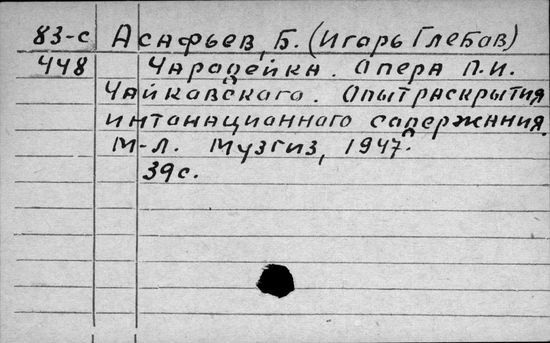 83-с Асафьев, Б. (Игорь Глебов)
448 Чародейка. Опера П.И.
Чайковского. Опыт раскрытия
интонационного содержания.
М-Л. Музгиз, 1947.
39с.